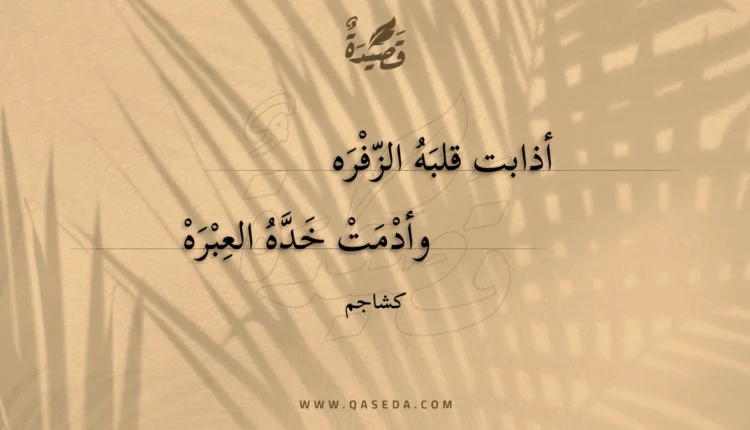 قَصِيْدَةٌ
أذابت قلبَهُ الزّفْرَه
وأدْمَتْ خَدَّهُ العِبْرَهْ
كشاجم
WWW.QASEDA.COM